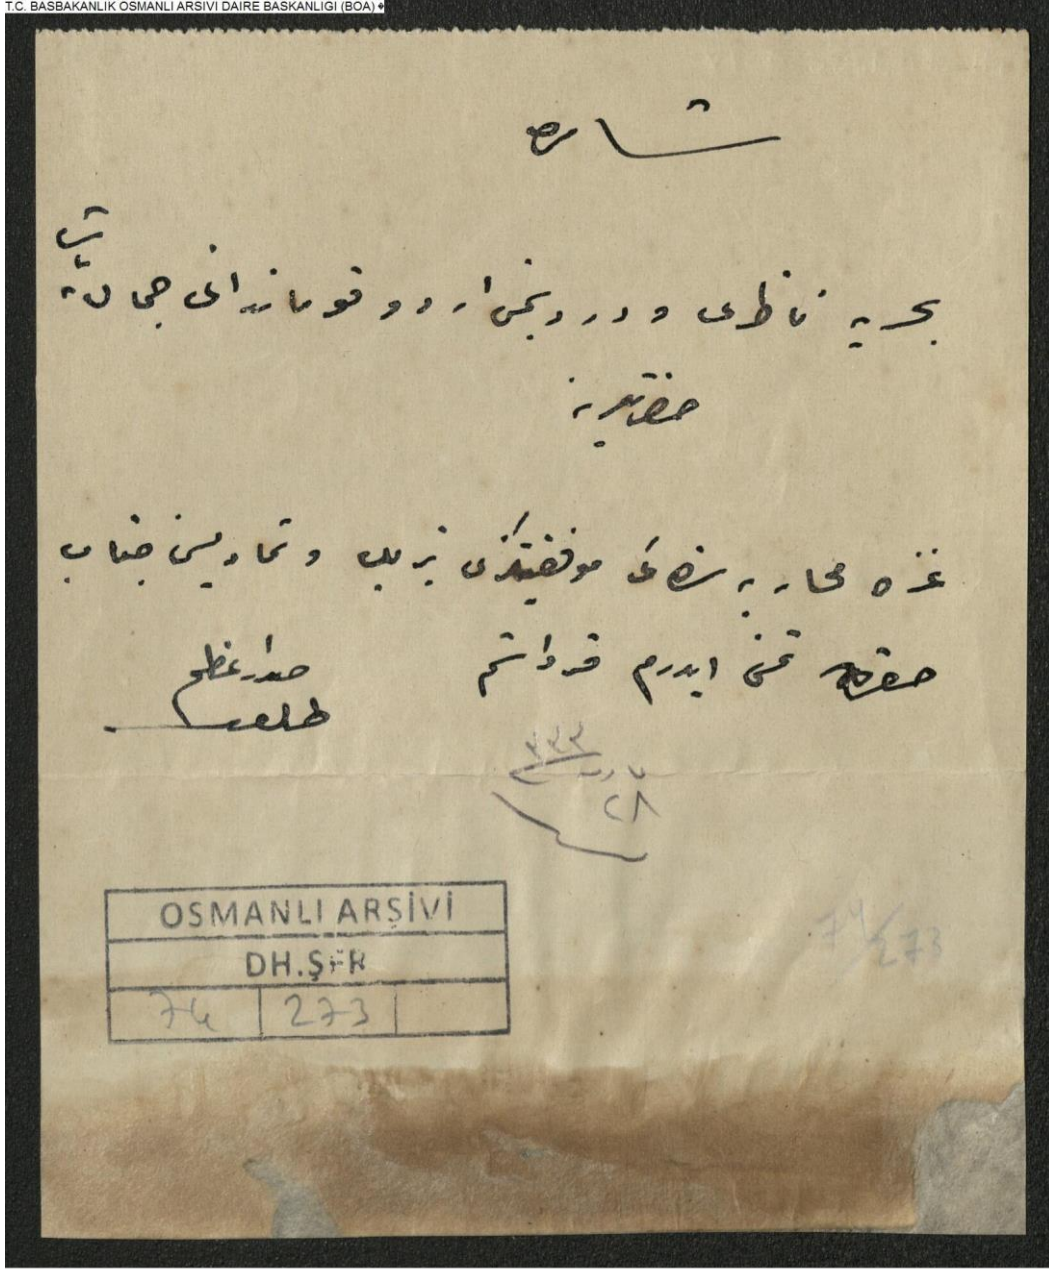 T.C. BASBAKANLIK OSMANLI ARSIVI DAIRE BASKANLIGI (BOA)
بحريه ناظرى و دردنجى اردو قوماندانى جمال پاشا
حضرتلرينه
غزه محاربه سنده كى موفقيتكزى تبريك و تماديسنى جناب
حقدن تمنى ايدرم قرداشم
صدراعظم
طلعت
٣٣٣
٢٨
OSMANLI ARŞİVİ
DH.ŞFR
74 273
74/273